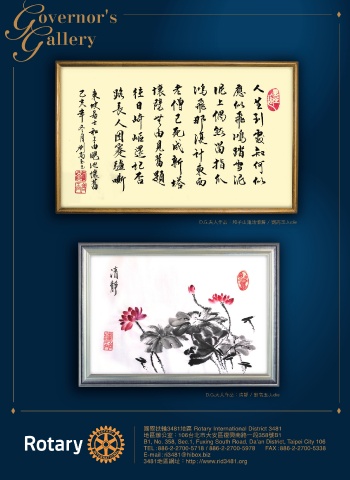 Governor's
Gallery
人生到處知何似
應似飛鴻踏雪泥
泥上偶然留指爪
鴻飛那復計東西
老僧已死成新塔
壞壁無由見舊題
往日崎嶇還記否
路長人困蹇驢嘶
東坡居士和子由澠池懷舊
己亥年
清靜
Rotary
國際扶輪3481地區 Rotary International District 3481
地區辦公室：106台北市大安區復興南路一段358號B1
B1, No. 358, Sec.1, Fuxing South Road, Da'an District, Taipei City 106
TEL：886-2-2700-5768 / 886-2-2700-5978 FAX : 886-2-2700-5338
E-mail : ri3481@hibox.biz
3481地區網址：http://www.rid3481.org